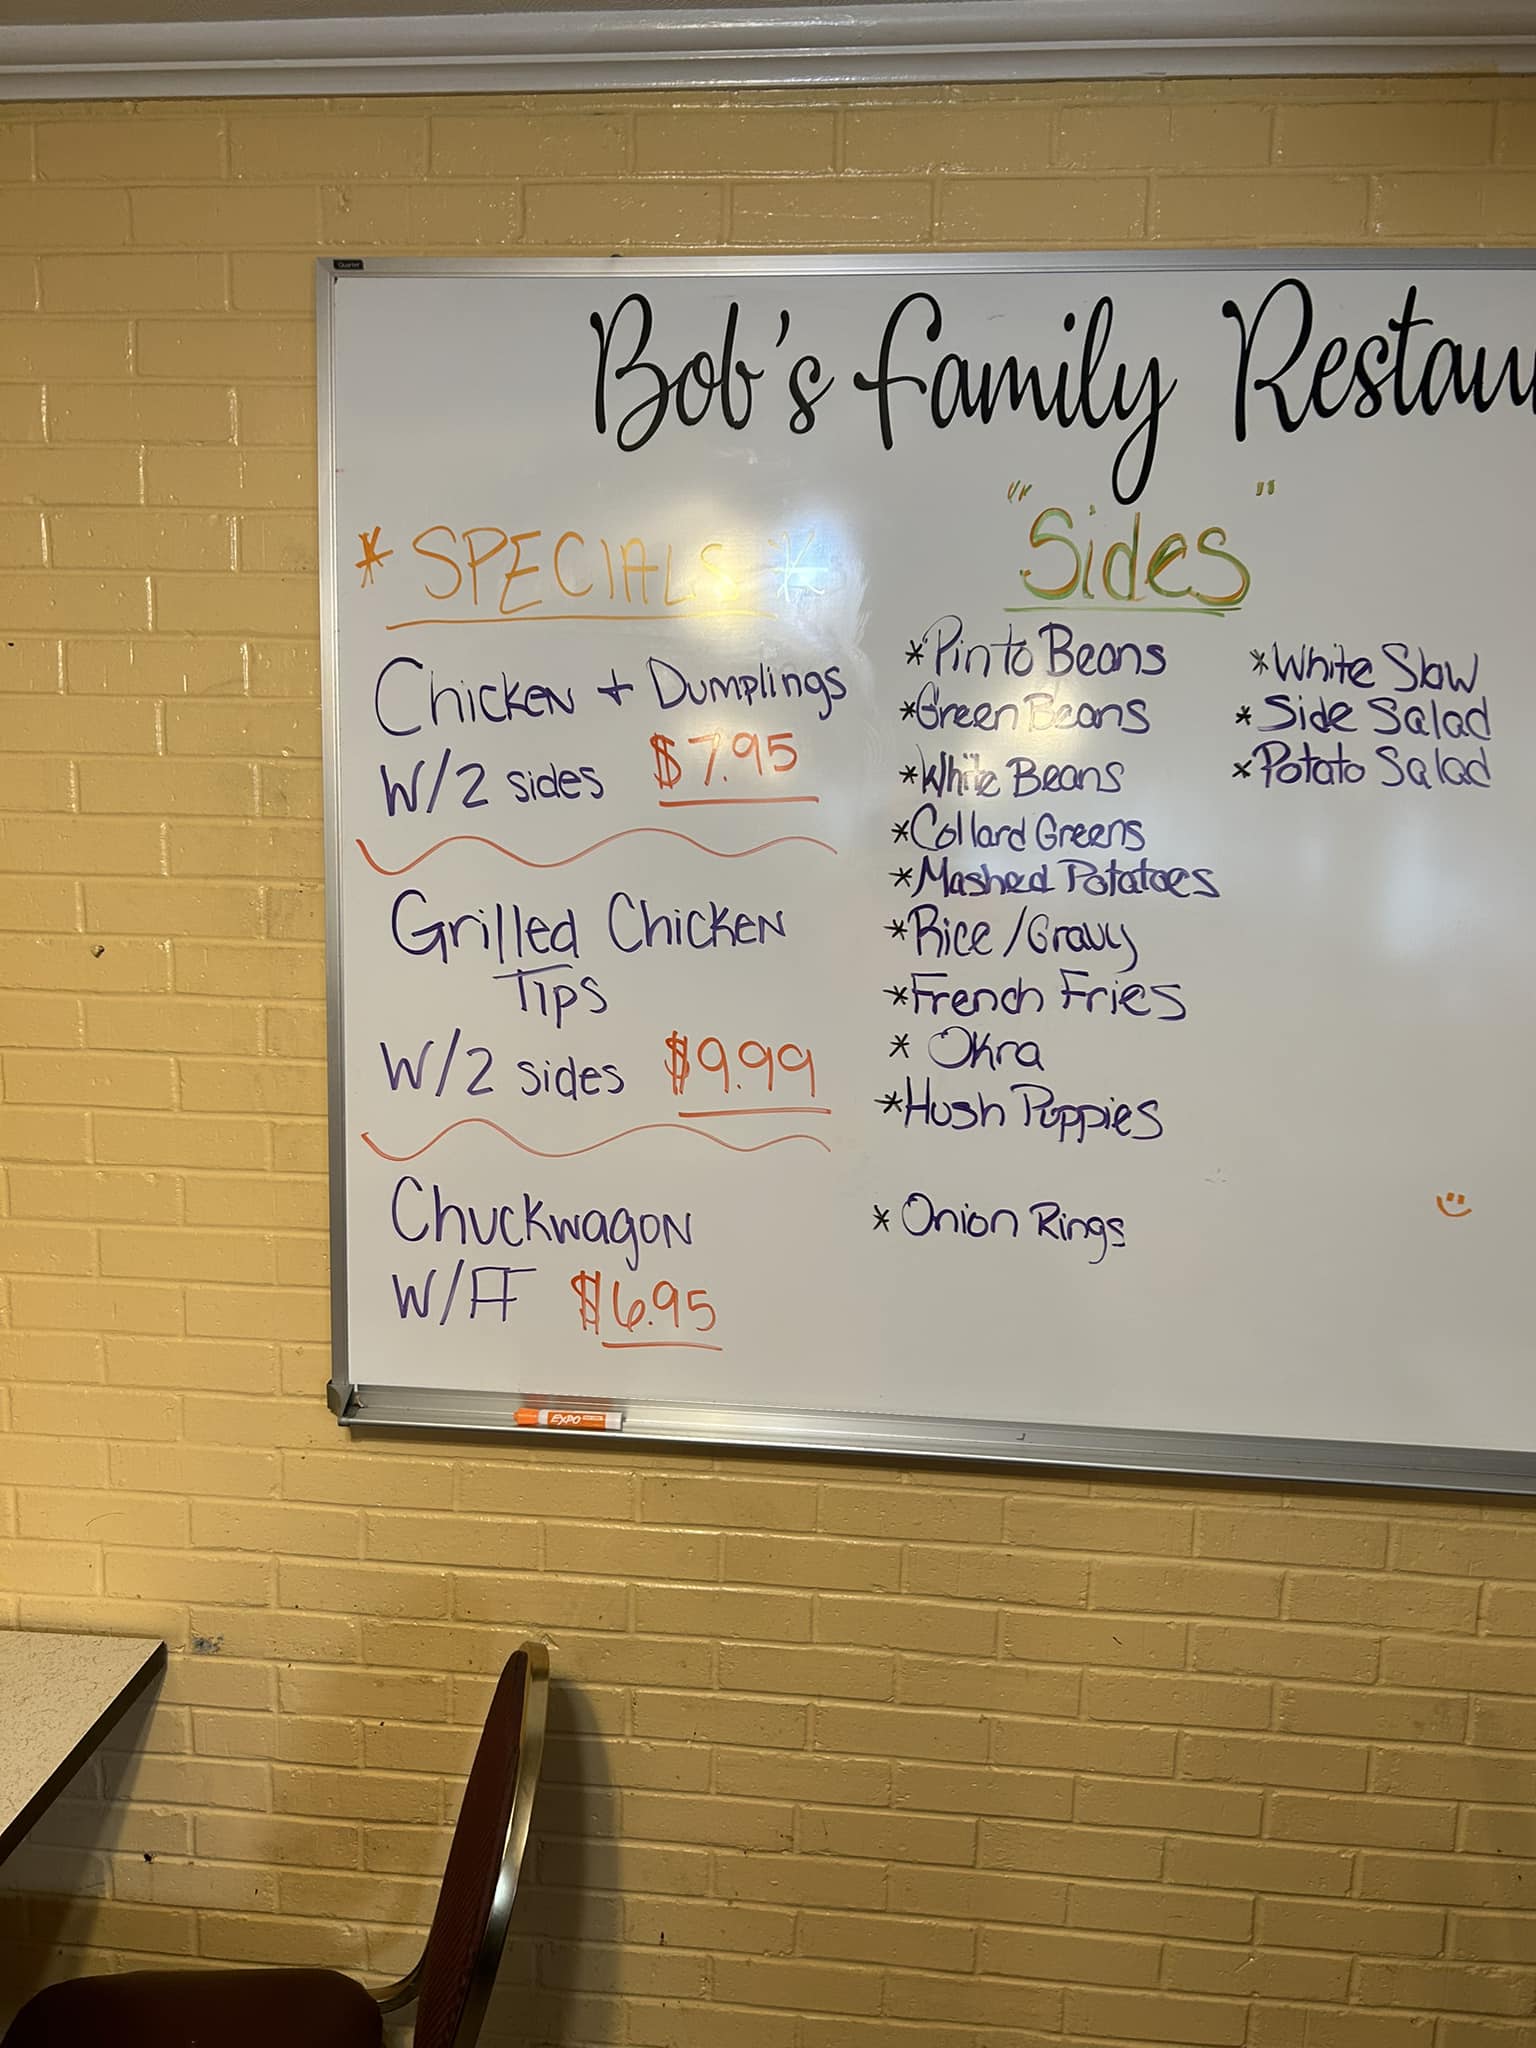 Quartet
Bob's Family Restau
* SPECIALS *
Chicken + Dumplings
W/2 sides $7.95
Grilled Chicken
Tips
W/2 sides $9.99
Chuckwagon
W/FF $6.95
"Sides"
*Pinto Beans
*Green Beans
*White Beans
*Collard Greens
*Mashed Potatoes
*Rice/Gravy
*French Fries
* Okra
*Hush Puppies
* Onion Rings
*White Slaw
* Side Salad
*Potato Salad
EXPO